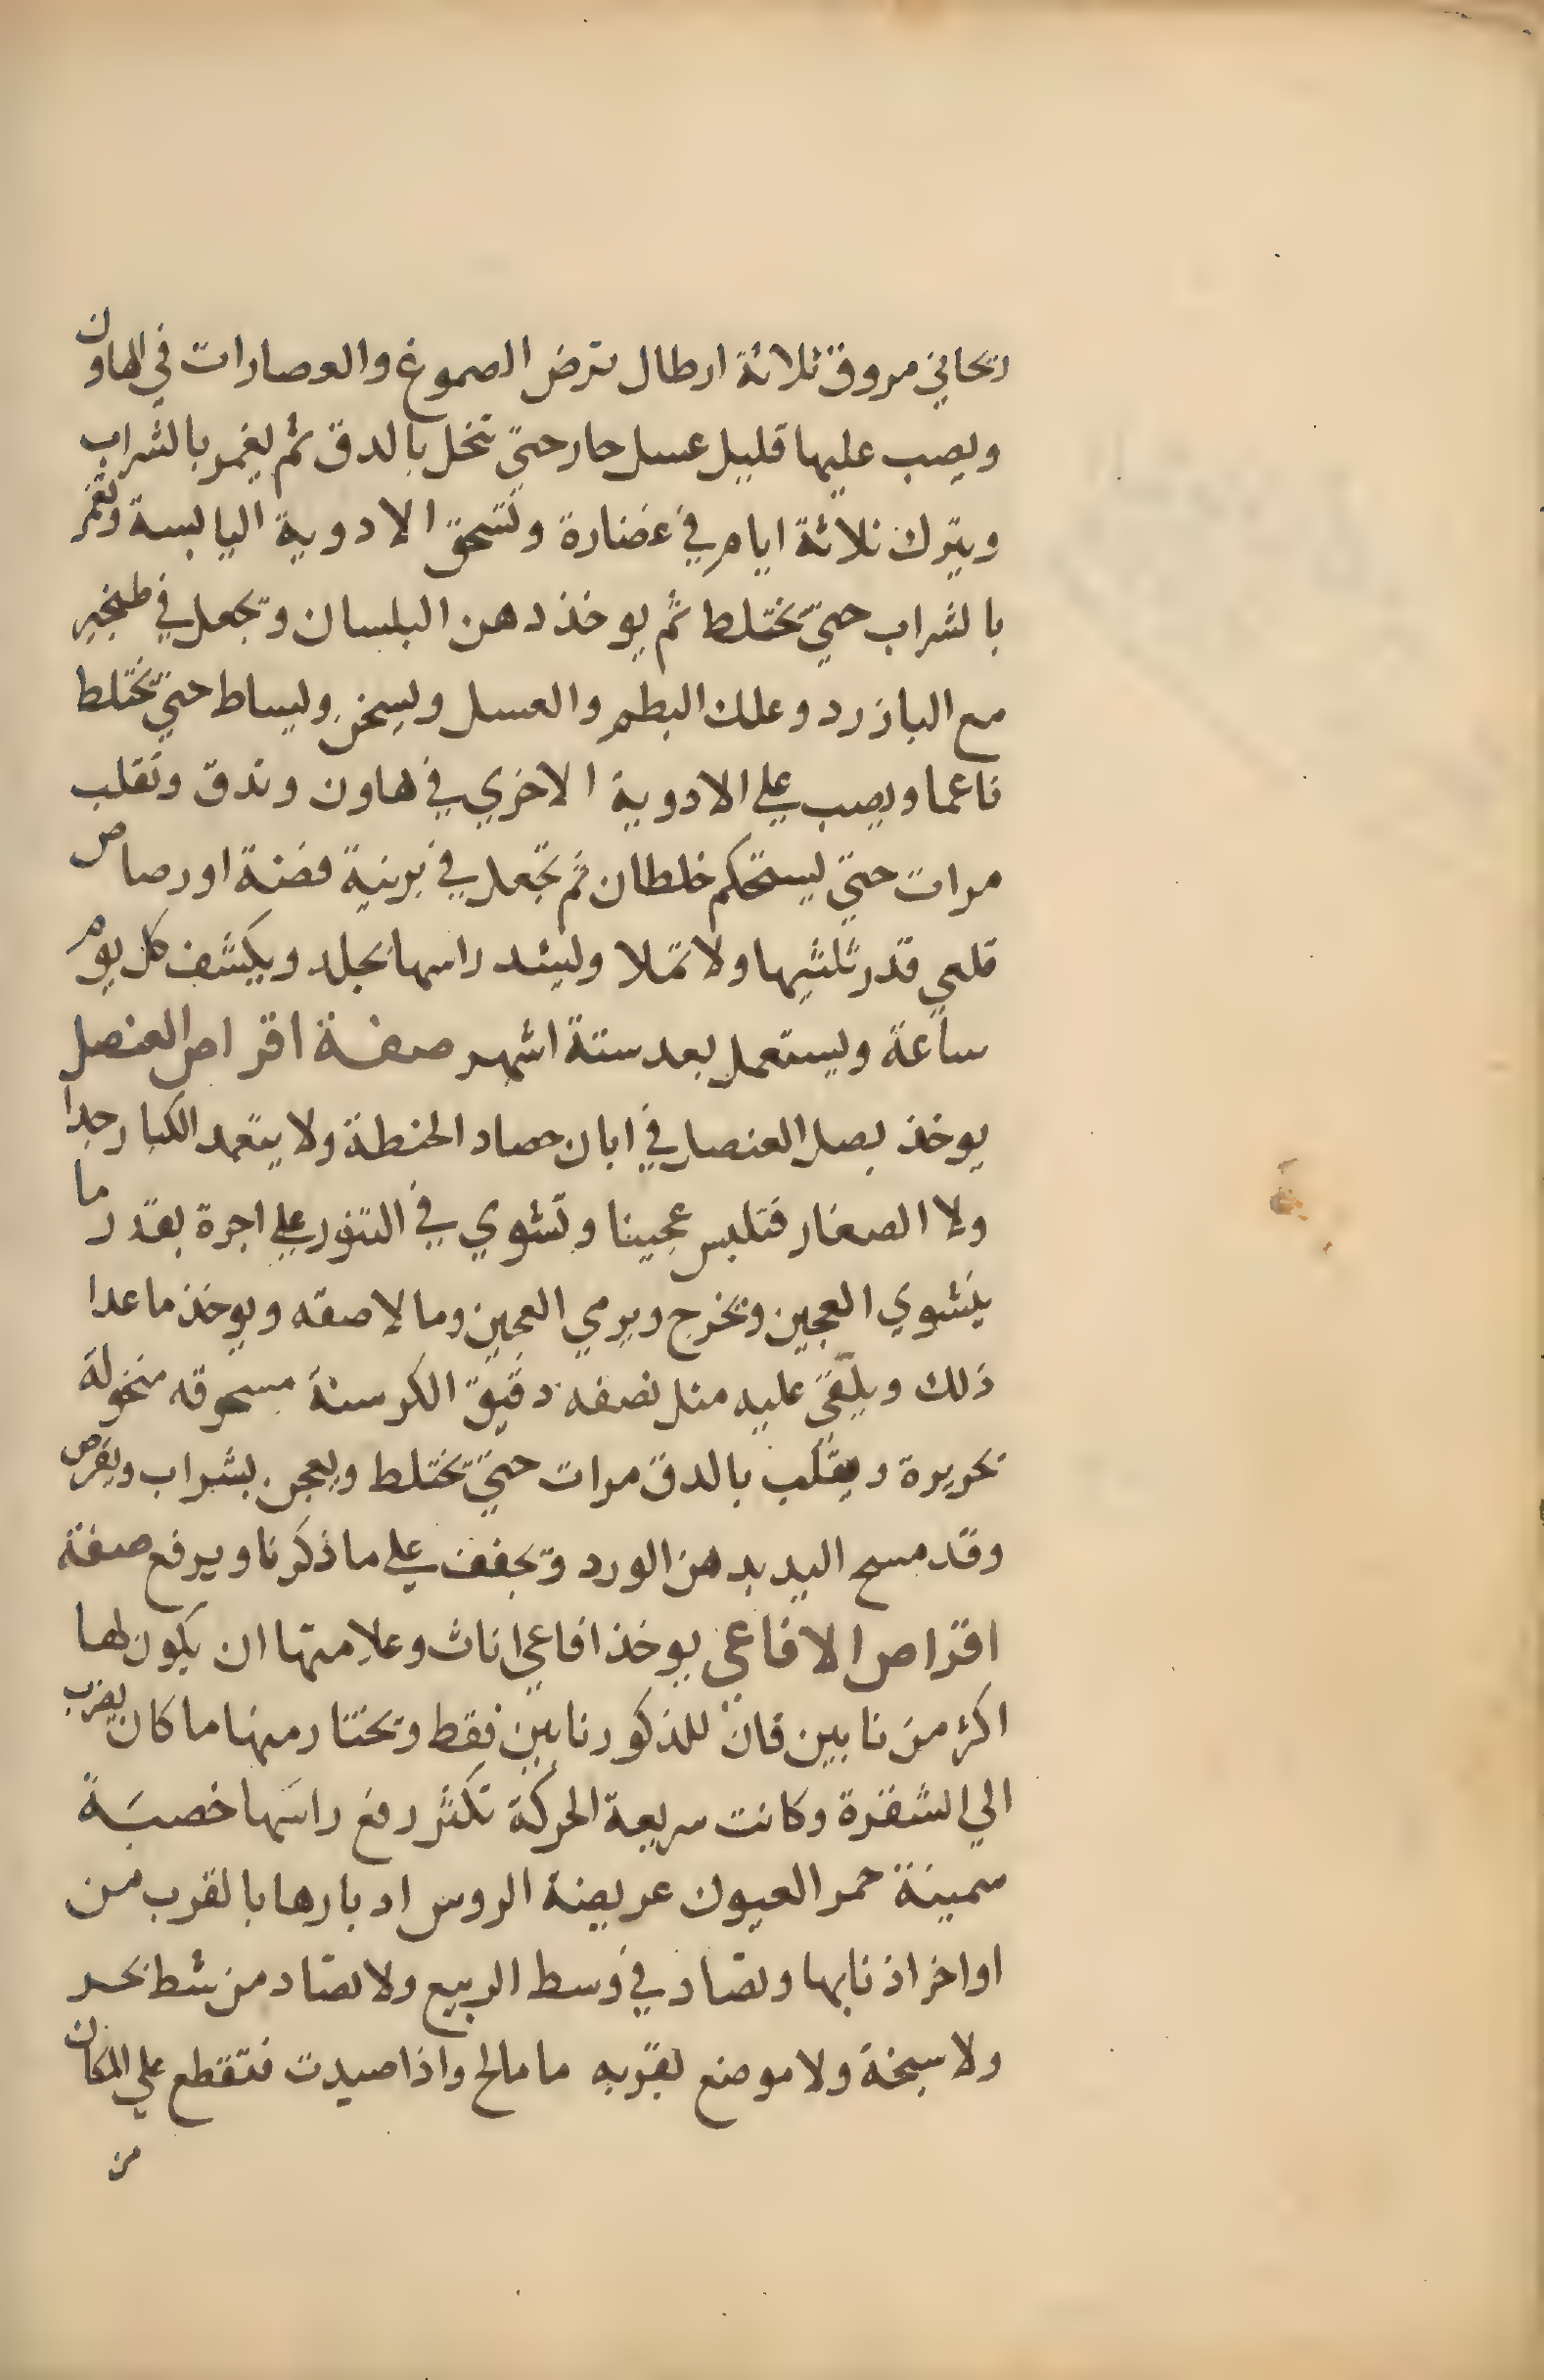 ريحاني مروق ثلاثة ارطال ترض الصموغ والعصارات في الهاون
ويصب عليها قليل عسل حار حتي تنحل بالدق ثم يغمر بالشراب
ويترك ثلاثة ايام في غضارة وتسحق الادوية اليابسة وتغمر
بالشراب حتي تختلط ثم يوخذ دهن البلسان وتجعل في طنجير
مع البازرد وعلك البطم والعسل ويسخن ويساط حتي تختلط
ناعما ويصب علي الادوية الاخري في هاون وتدق وتقلب
مرات حتي يستحكم خلطان ثم تجعل في برنية فضة او رصاص
قلعي قدر ثلثيها ولا تملا ويشد راسها بجلد ويكشف كل يوم
ساعة ويستعمل بعد ستة اشهر صفة اقراص العنصل
يوخذ بصل العنصل في ابان حصاد الحنطة ولا يتعمد الكبار جدا
ولا الصغار فتلبس عجينا وتشوي في التنور علي اجرة بقدر ما
ينشوي العجين وتخرج ويرمي العجين وما لاصقه ويوخذ ما عدا
ذلك ويلقي عليه مثل نصفه دقيق الكرسنة مسحوقه منخولة
بحريرة ويقلب بالدق مرات حتي تختلط ويعجن بشراب ويقرص
وقد مسح اليد بدهن الورد وتجفف علي ما ذكرنا ويرفع صفة
اقراص الافاعي يوخذ افاعي اناث وعلامتها ان يكون لها
اكثر من نابين فان للذكور نابين فقط وتختار منها ما كان يضرب
الي الشقرة وكانت سريعة الحركة تكثر رفع راسها خصبة
سمينة حمر العيون عريضة الروس ادبارها بالقرب من
اواخر اذنابها وتصاد في وسط الربيع ولا تصاد من شط بحر
ولا سبخة ولا موضع بقربه ما مالح واذا صيدت فتقطع علي المكان
من